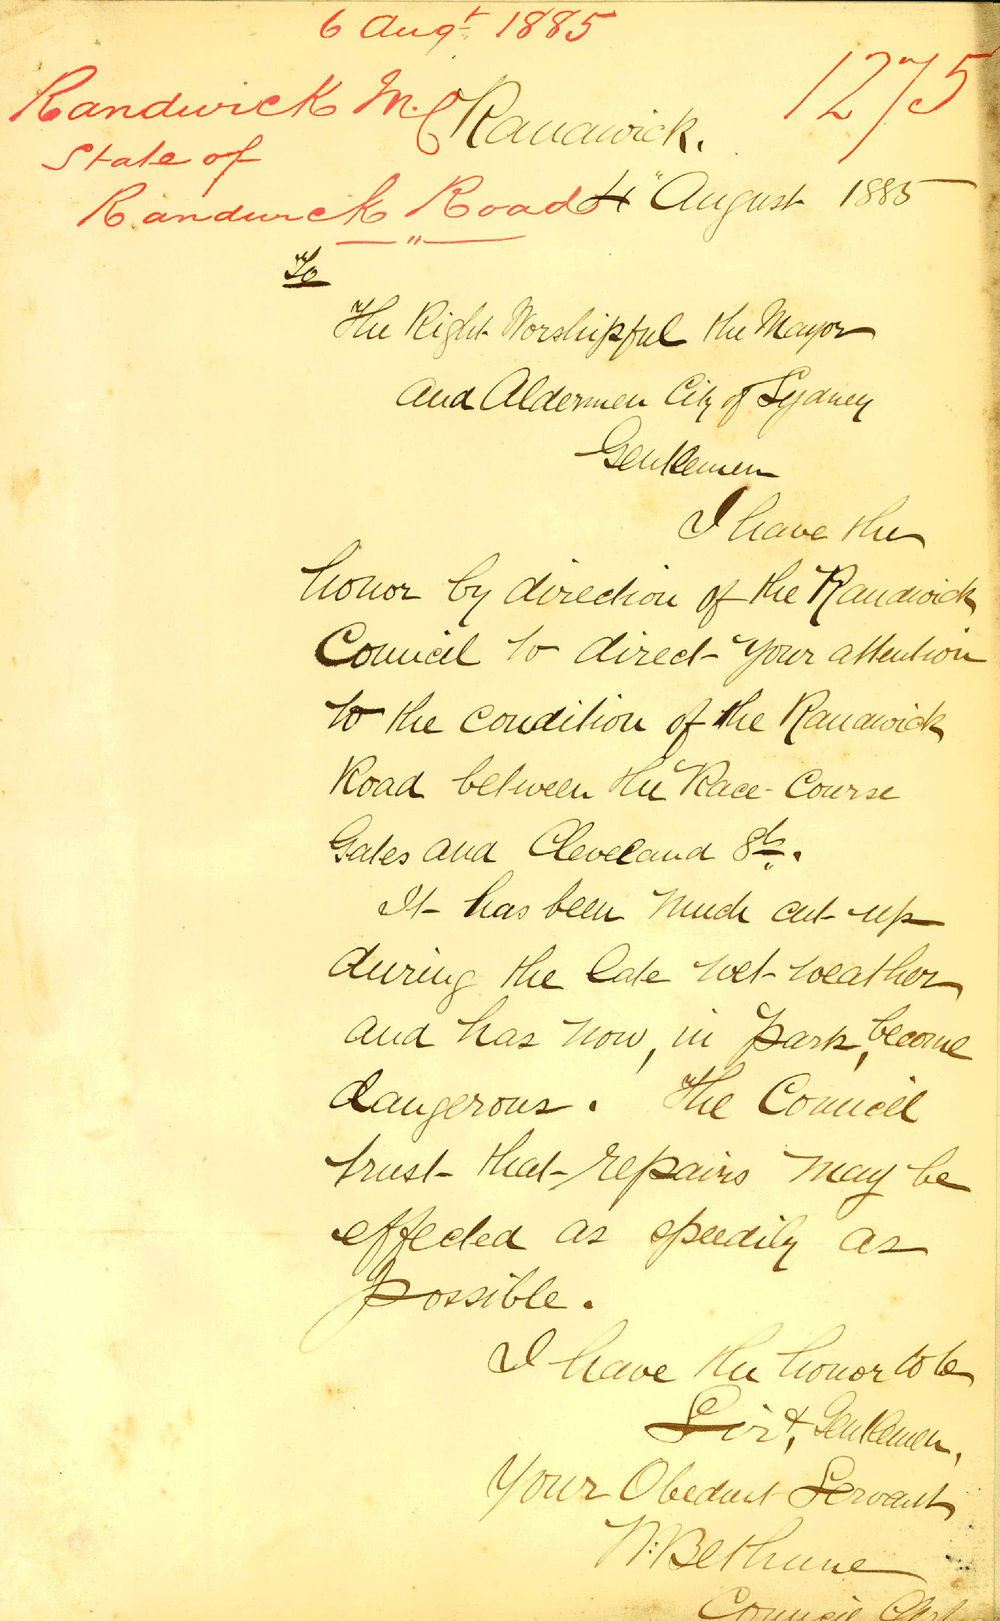 6 Augt. 1885
1275
Randwick M.C
State of
Randwick Road
Randwick.
4" August 1885
To
The Right Worshipful the Mayor
and Aldermen City of Sydney
Gentlemen
I have the
honor by direction of the Randwick
Council to direct your attention
to the condition of the Randwick
Road between the Race-Course
Gates and Cleveland St.
It has been much cut up
during the late wet weather
and has now, in parts, become
dangerous. The Council
trust that repairs may be
effected as speedily as
possible.
I have the honor to be
Sir &, Gentlemen,
Your Obedient Servant
Bethune
Council